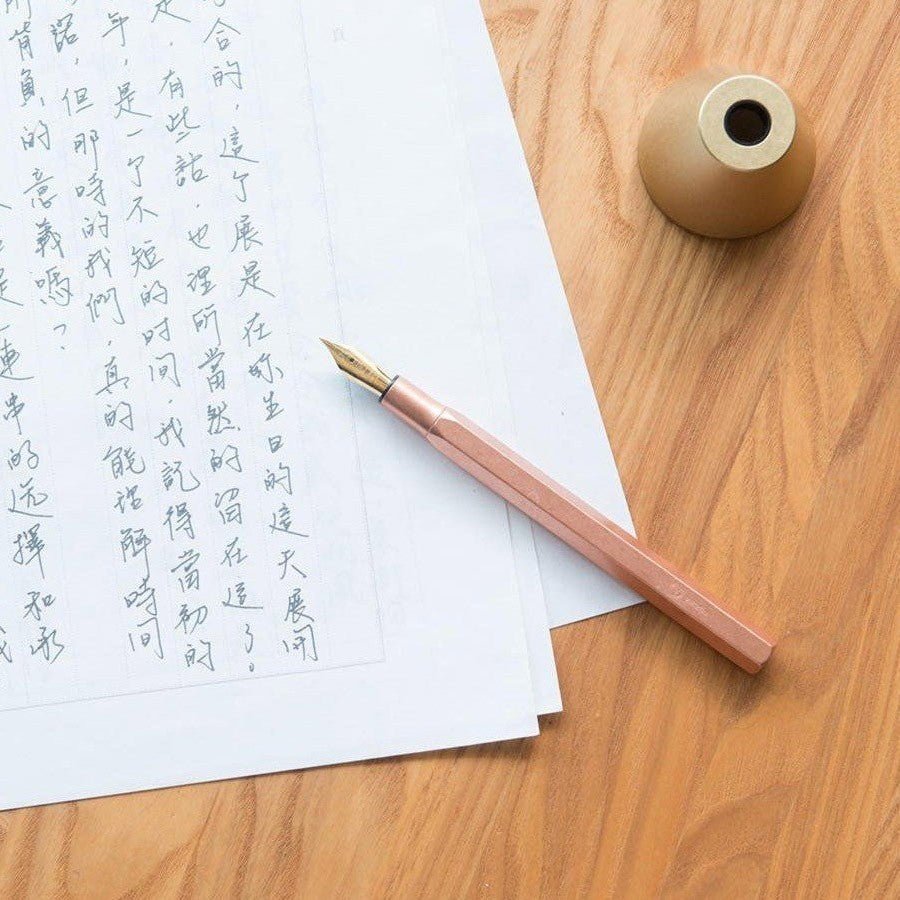 合的，這个展是在妳生日的這天展開
是，有些話，也理所當然的留在這了。
年，是一个不短的时间，我記得當初的
諾，但那時的我們，真的能理解時間
所背負的意義嗎？
是一連串的选擇和承